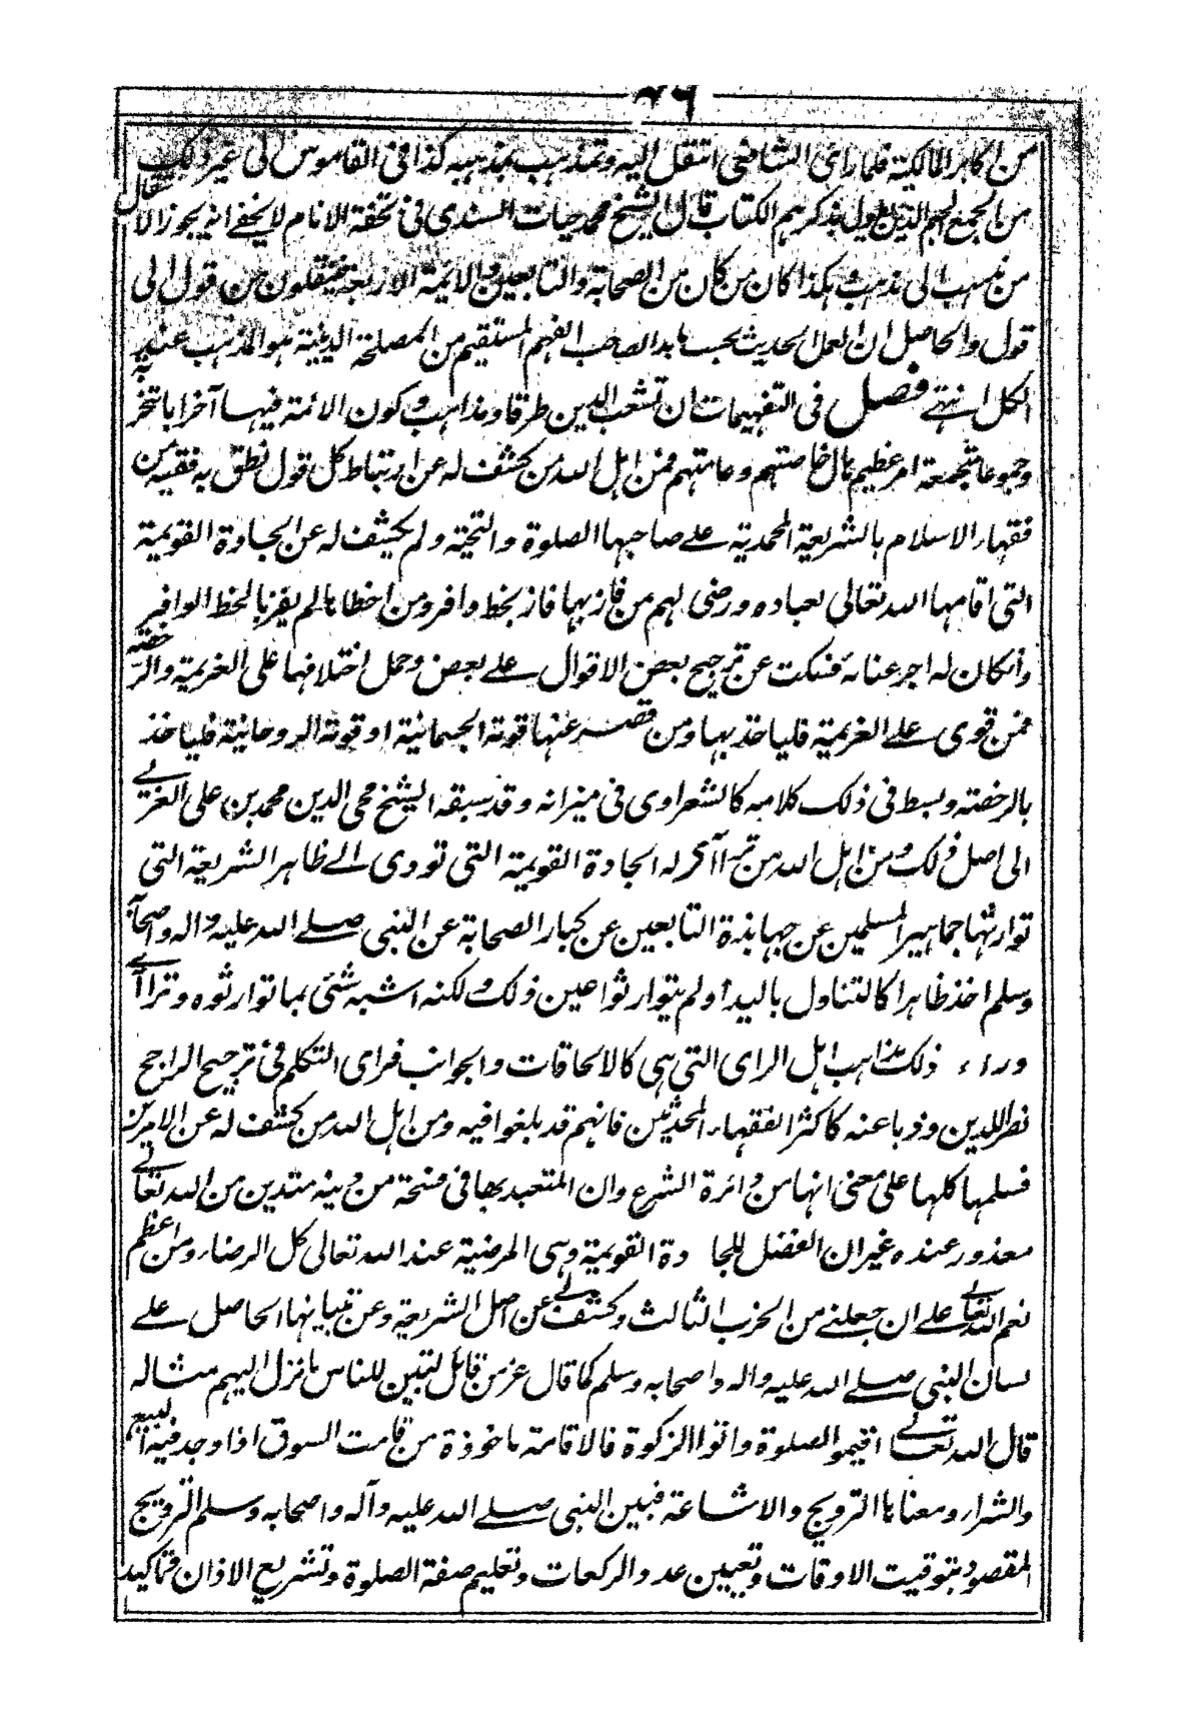 ٧٦
من اكابر المالكية فلما رأى الشافعي انتقل اليه وتمذهب بمذهبه كذا فى القاموس الى غير ذلك
من الجمع لجم الذين يطول بذكرهم الكتاب قال الشيخ محمد حيات السندى فى تحفة الانام لا يخفے انه يجوز الانتقال
من مذهب الى مذهب وهكذا كان من كان من الصحابة والتابعين والائمة الاربعة ينتقلون من قول الى
قول والحاصل ان العمل بالحديث بحسب ما بدا لصاحب الفهم المستقيم من المصلحة الدينية هو المذهب عند
الكل انتهے فصل فى التفهيمات ان تشعب الدين طرقا ومذاهب وكون الائمة فيها آخرا باتخر
وجموعا مجتمعة امر عظيم هال خاصتهم وعامتهم فمن اهل الله من كشف له عن ارتباط كل قول نطق به فقيه من
فقهاء الاسلام بالشريعة المحمدية علے صاحبها الصلوة والتحية ولم يكشف له عن الجادة القويمة
التى اقامها الله تعالى لعباده ورضى لهم من فاز بها فاز بحظ وافر ومن اخطاها لم يفز بالحظ الوافر
وانكان له اجر عنائه فسكت عن ترجيح بعض الاقوال علے بعض وحمل اختلافها على العزيمة والرخصة
فمن قوى علے العزيمة فلياخذ بها ومن قصر عنها قوته الجسمانية او قوته الروحانية فلياخذ
بالرخصة وبسط فى ذلك كلامه كالشعراوى فى ميزانه وقد سبقه الشيخ محى الدين محمد بن على العربے
الى اصل ذلك ومن اهل الله من تراآى له الجادة القويمة التى تودى الے ظاهر الشريعة التى
توارثها جماهير المسلمين عن جهابذة التابعين عن كبار الصحابة عن النبى صلے الله عليه واله واصحابه
وسلم اخذ ظاهرا كالتناول باليد اولم يتوارثوا عين ذلك ولكنه اشبه شئى بما توارثوه وتراآے
وراء ذلك مذاهب اهل الراى التى هى كالالحاقات والجوانب فراى التكلم فى ترجيح الراجح
نصرا للدين وذبا عنه كاكثر الفقهاء المحدثين فانهم قد بلغوا فيه ومن اهل الله من كشف له عن الامرين
فسلمها كلها على معنى انها من دائرة الشرع وان المتعبد بها فى فسحة من دينه متدين من الله تعالے
معذور عنده غير ان الفضل للجادة القويمة وهى المرضية عند الله تعالى كل الرضاء ومن اعظم
نعم الله تعالے علے ان جعلنے من الحزب الثالث وكشف لے عن اصل الشريعة وعن تبيانها الحاصل علے
لسان النبى صلے الله عليه واله واصحابه وسلم كما قال عز من قائل لتبين للناس ما نزل اليهم مثاله
قال الله تعالے اقيموا الصلوة واتوا الزكوة فالاقامة ماخوذة من قامت السوق اذا وجد فيه البيع
والشراء ومعناها الترويج والاشاعة فبين النبى صلے الله عليه وآله واصحابه وسلم الترويج
المقصود بتوقيت الاوقات وتعيين عدد الركعات وتعليم صفة الصلوة وتشريع الاذان وتاكيد